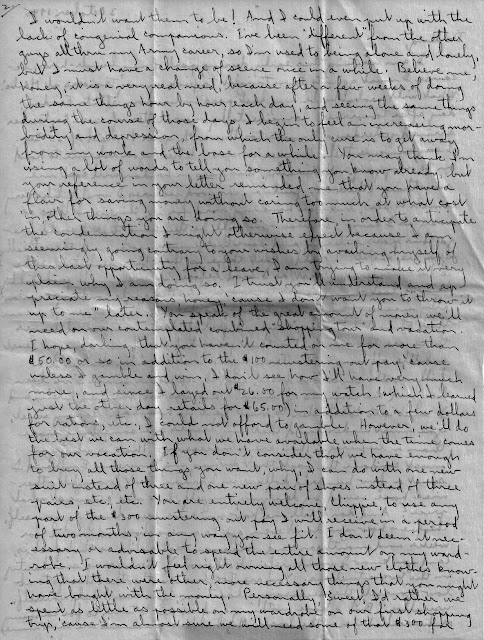 2/
I wouldn't want them to be! And I could even put up with the
lack of congenial companions. I've been "different" from the other
guys all thru my Army career, so I'm used to being alone and lonely,
but I must have a change of scene once in a while. Believe me,
honey, it is a very real need, because after a few weeks of doing
the same things hour by hour each day, and seeing the same things
during the course of those days, I begin to feel an increasing mor-
bidity and depression, from which the only cure is to get away
from my work and the base for a while. You may think I'm
using a lot of words to tell you something you know already, but
your reference in your letter reminded me that you have a
flair for saving money without caring too much at what cost
in other things you are doing so. Therefore, in order to anticipate
the condemnation I might otherwise expect because I am
seemingly going contrary to your wishes by availing myself of
this last opportunity for a leave, I am trying to make it very
plain why I am doing so. I trust you'll understand and ap-
preciate my reasons, honey, 'cause I don't want you to "throw it
up to me" later. You speak of the great amount of money we'll
need on our contemplated combined shopping tour and vacation.
I hope, darling, that you haven't counted on me for more than
$50.00 or so in addition to the $100 "mustering out pay", 'cause
unless I gamble and win, I don't see how I'll have very much
more, and since I layed out $26.00 for my watch (which I learned
just the other day retails for $65.00) in addition to a few dollars
for rations, etc., I could not afford to gamble. However, we'll do
the best we can with what we have available when the time comes
for our vacation. If you don't consider that we have enough
to buy all those things you want, why, I can do with one new
suit instead of three and one new pair of shoes instead of three
pairs, etc., etc. You are entirely welcome, Chippie, to use any
part of the $300 mustering out pay I will receive in a period
of two months, in any way you see fit. I don't deem it nec-
essary or advisable to spend the entire amount on my ward-
robe. I wouldn't feel right owning all those new clothes know-
ing that there were other, more necessary things that you might
have bought with the money. Personally, Sweet, I'd rather we
spent as little as possible on my wardrobe on our first shopping
trip, 'cause I'm almost sure we will need some of that $300 for